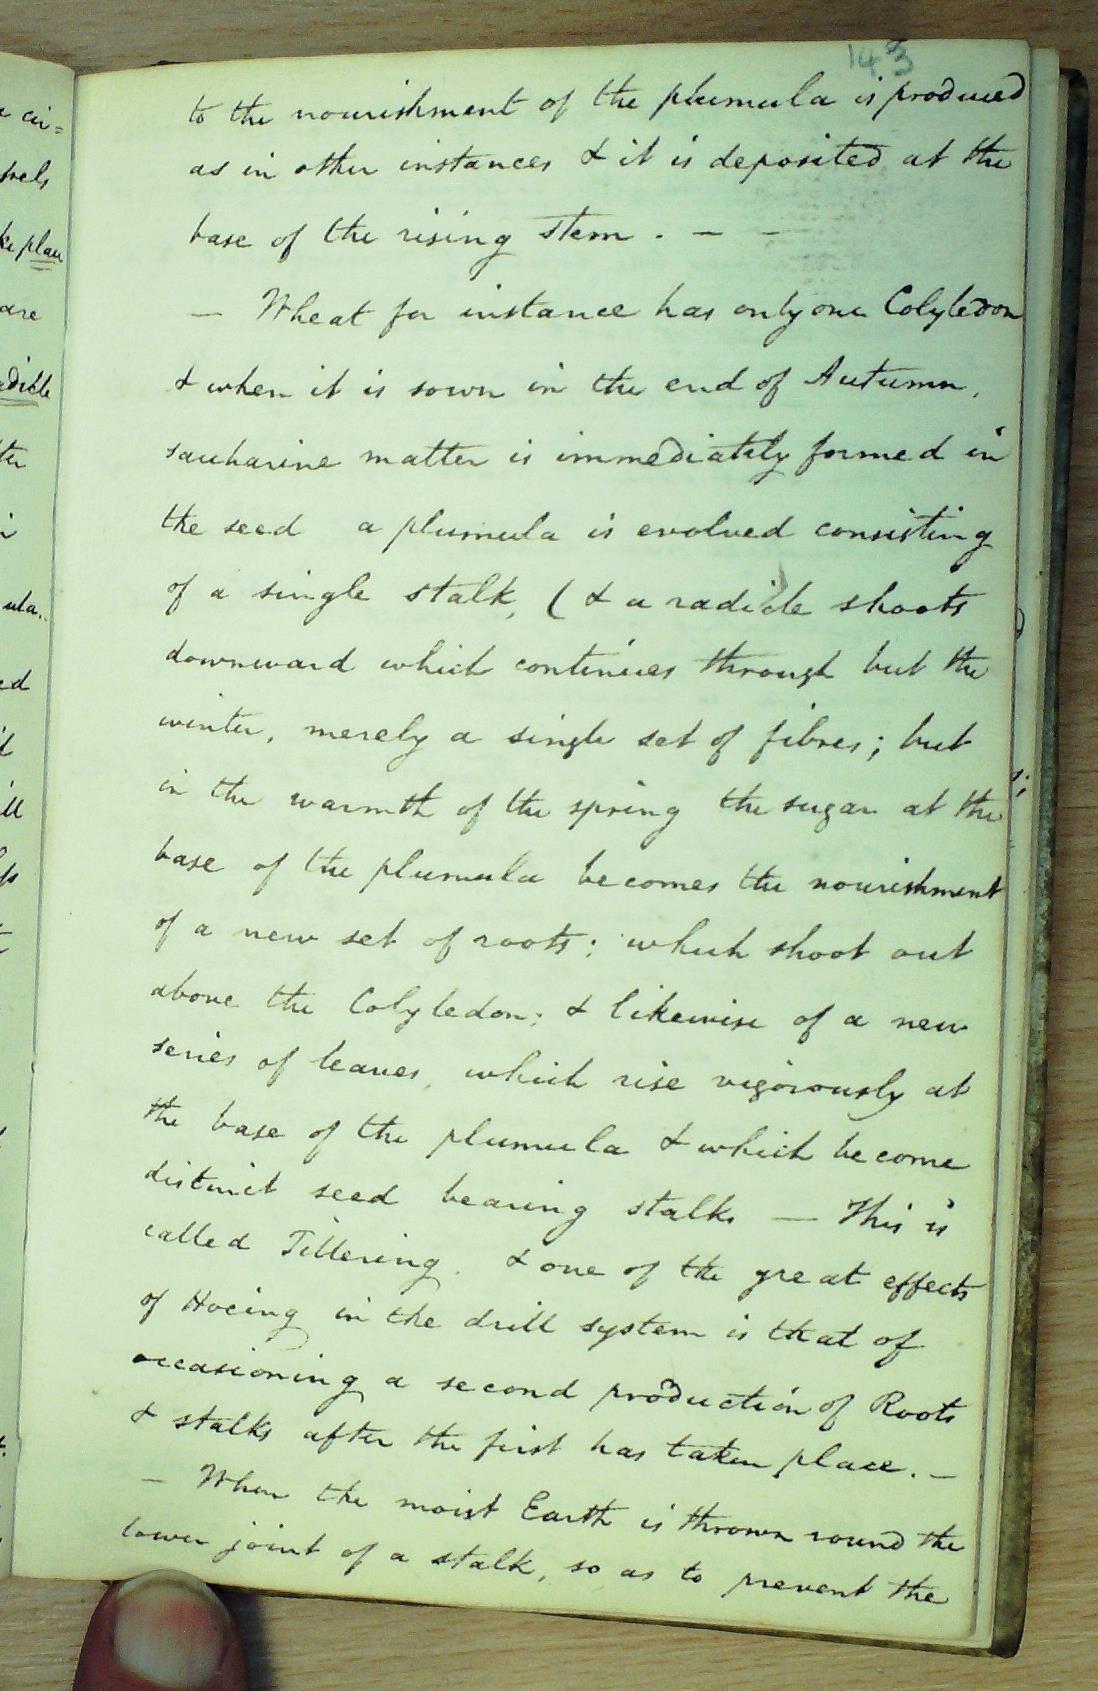 143
to the nourishment of the plumula is produced
as in other instances & it is deposited at the
base of the rising stem . – –
– Wheat for instance has only one Colyledon
& when it is sown in the end of Autumn,
saccharine matter is immediately formed in
the seed a plumula is evolved consisting
of a single stalk, ( & a radicle shoots
downward which continues through but the
winter, merely a single set of fibres; but
in the warmth of the spring the sugar at the
base of the plumula becomes the nourishment
of a new set of roots; which shoot out
above the Colyledon; & likewise of a new
series of leaves, which rise vigorously at
the base of the plumula & which become
distinct seed bearing stalks — This is
called Tillering. & one of the great effects
of Hoeing in the drill system is that of
occasioning a second production of Roots
& stalks after the first has taken place. –
– When the moist Earth is thrown round the
lower joint of a stalk, so as to prevent the